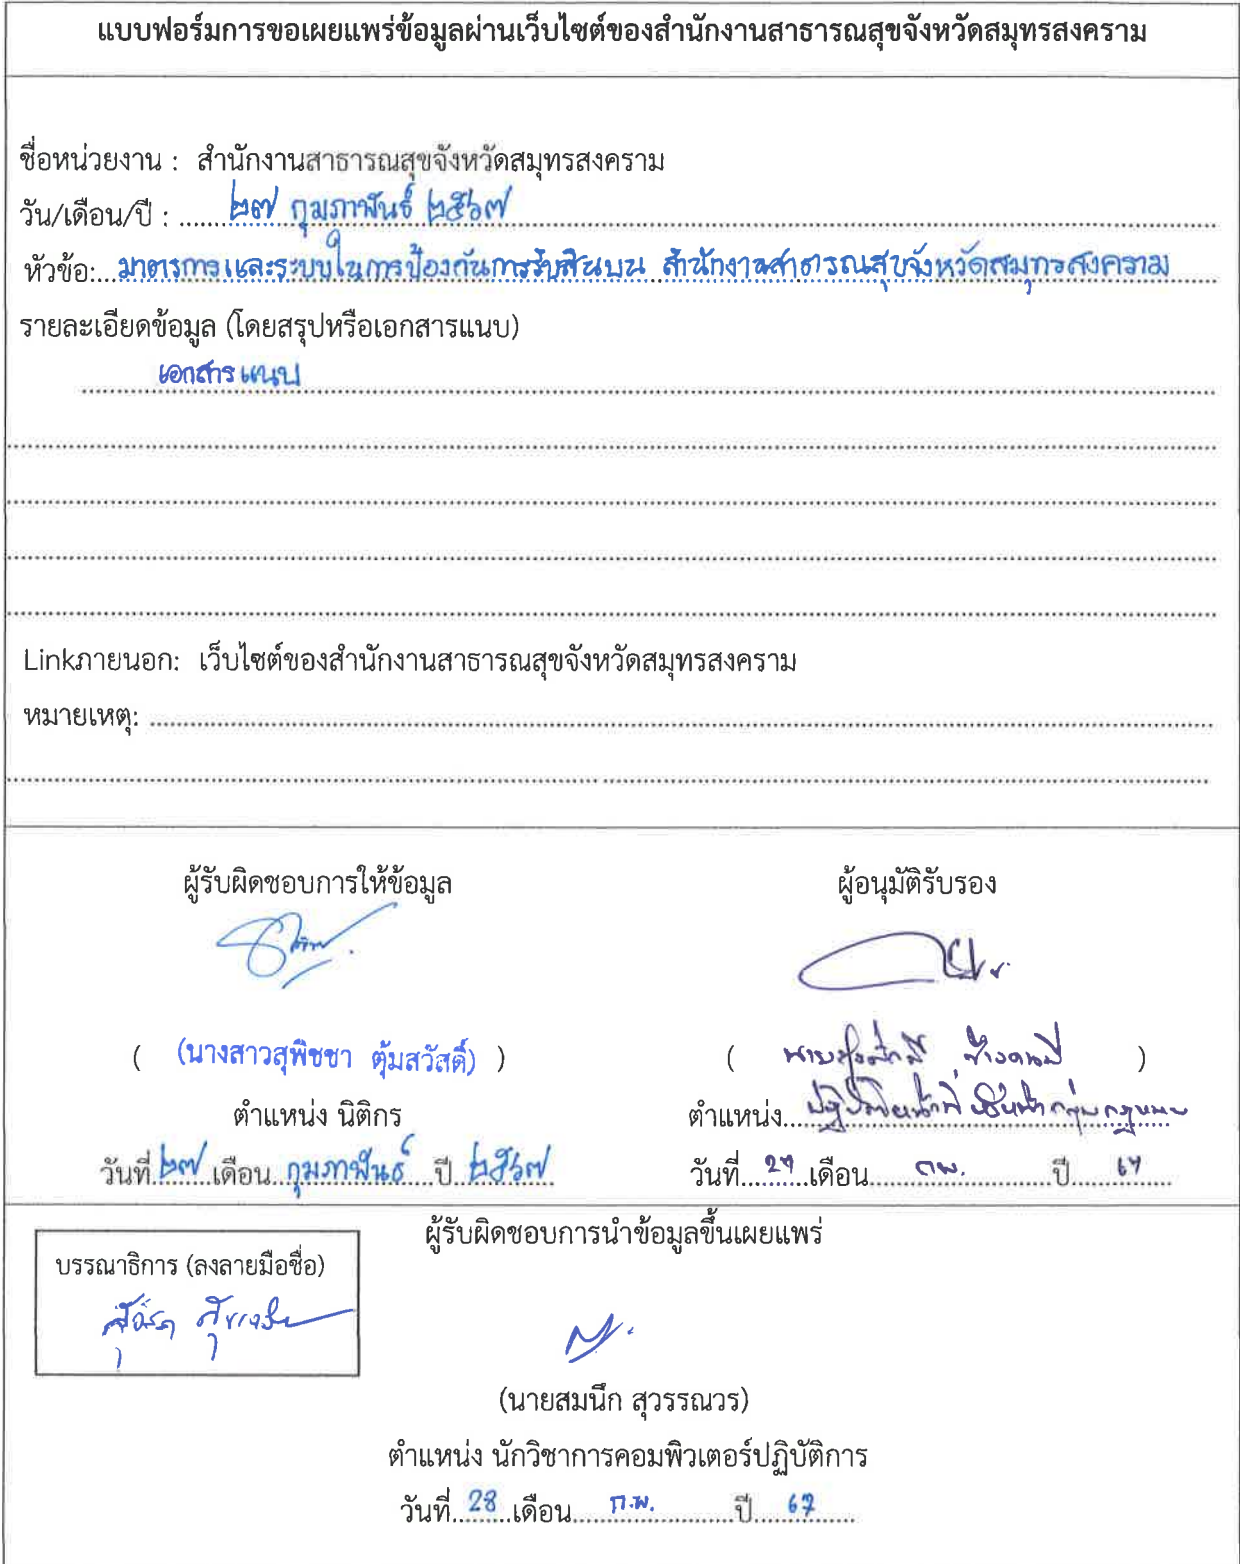 แบบฟอร์มการขอเผยแพร่ข้อมูลผ่านเว็บไซต์ของสำนักงานสาธารณสุขจังหวัดสมุทรสงคราม
ชื่อหน่วยงาน : สำนักงานสาธารณสุขจังหวัดสมุทรสงคราม
วัน/เดือน/ปี : ๒๗ กุมภาพันธ์ ๒๕๖๗
หัวข้อ: มาตรการและระบบในการป้องกันการรับสินบน สำนักงานสาธารณสุขจังหวัดสมุทรสงคราม
รายละเอียดข้อมูล (โดยสรุปหรือเอกสารแนบ)
เอกสารแนบ
Linkภายนอก: เว็บไซต์ของสำนักงานสาธารณสุขจังหวัดสมุทรสงคราม
หมายเหตุ:
ผู้รับผิดชอบการให้ข้อมูล ผู้อนุมัติรับรอง
( (นางสาวสุพิชชา ตุ้มสวัสดิ์) ) ( )
ตำแหน่ง นิติกร ตำแหน่ง ปฏิบัติหน้าที่ หัวหน้ากลุ่มกฎหมาย
วันที่ ๒๗ เดือน กุมภาพันธ์ ปี ๒๕๖๗ วันที่ 27 เดือน กพ. ปี 67
ผู้รับผิดชอบการนำข้อมูลขึ้นเผยแพร่
บรรณาธิการ (ลงลายมือชื่อ)
(นายสมนึก สุวรรณวร)
ตำแหน่ง นักวิชาการคอมพิวเตอร์ปฏิบัติการ
วันที่ 28 เดือน ก.พ. ปี 67